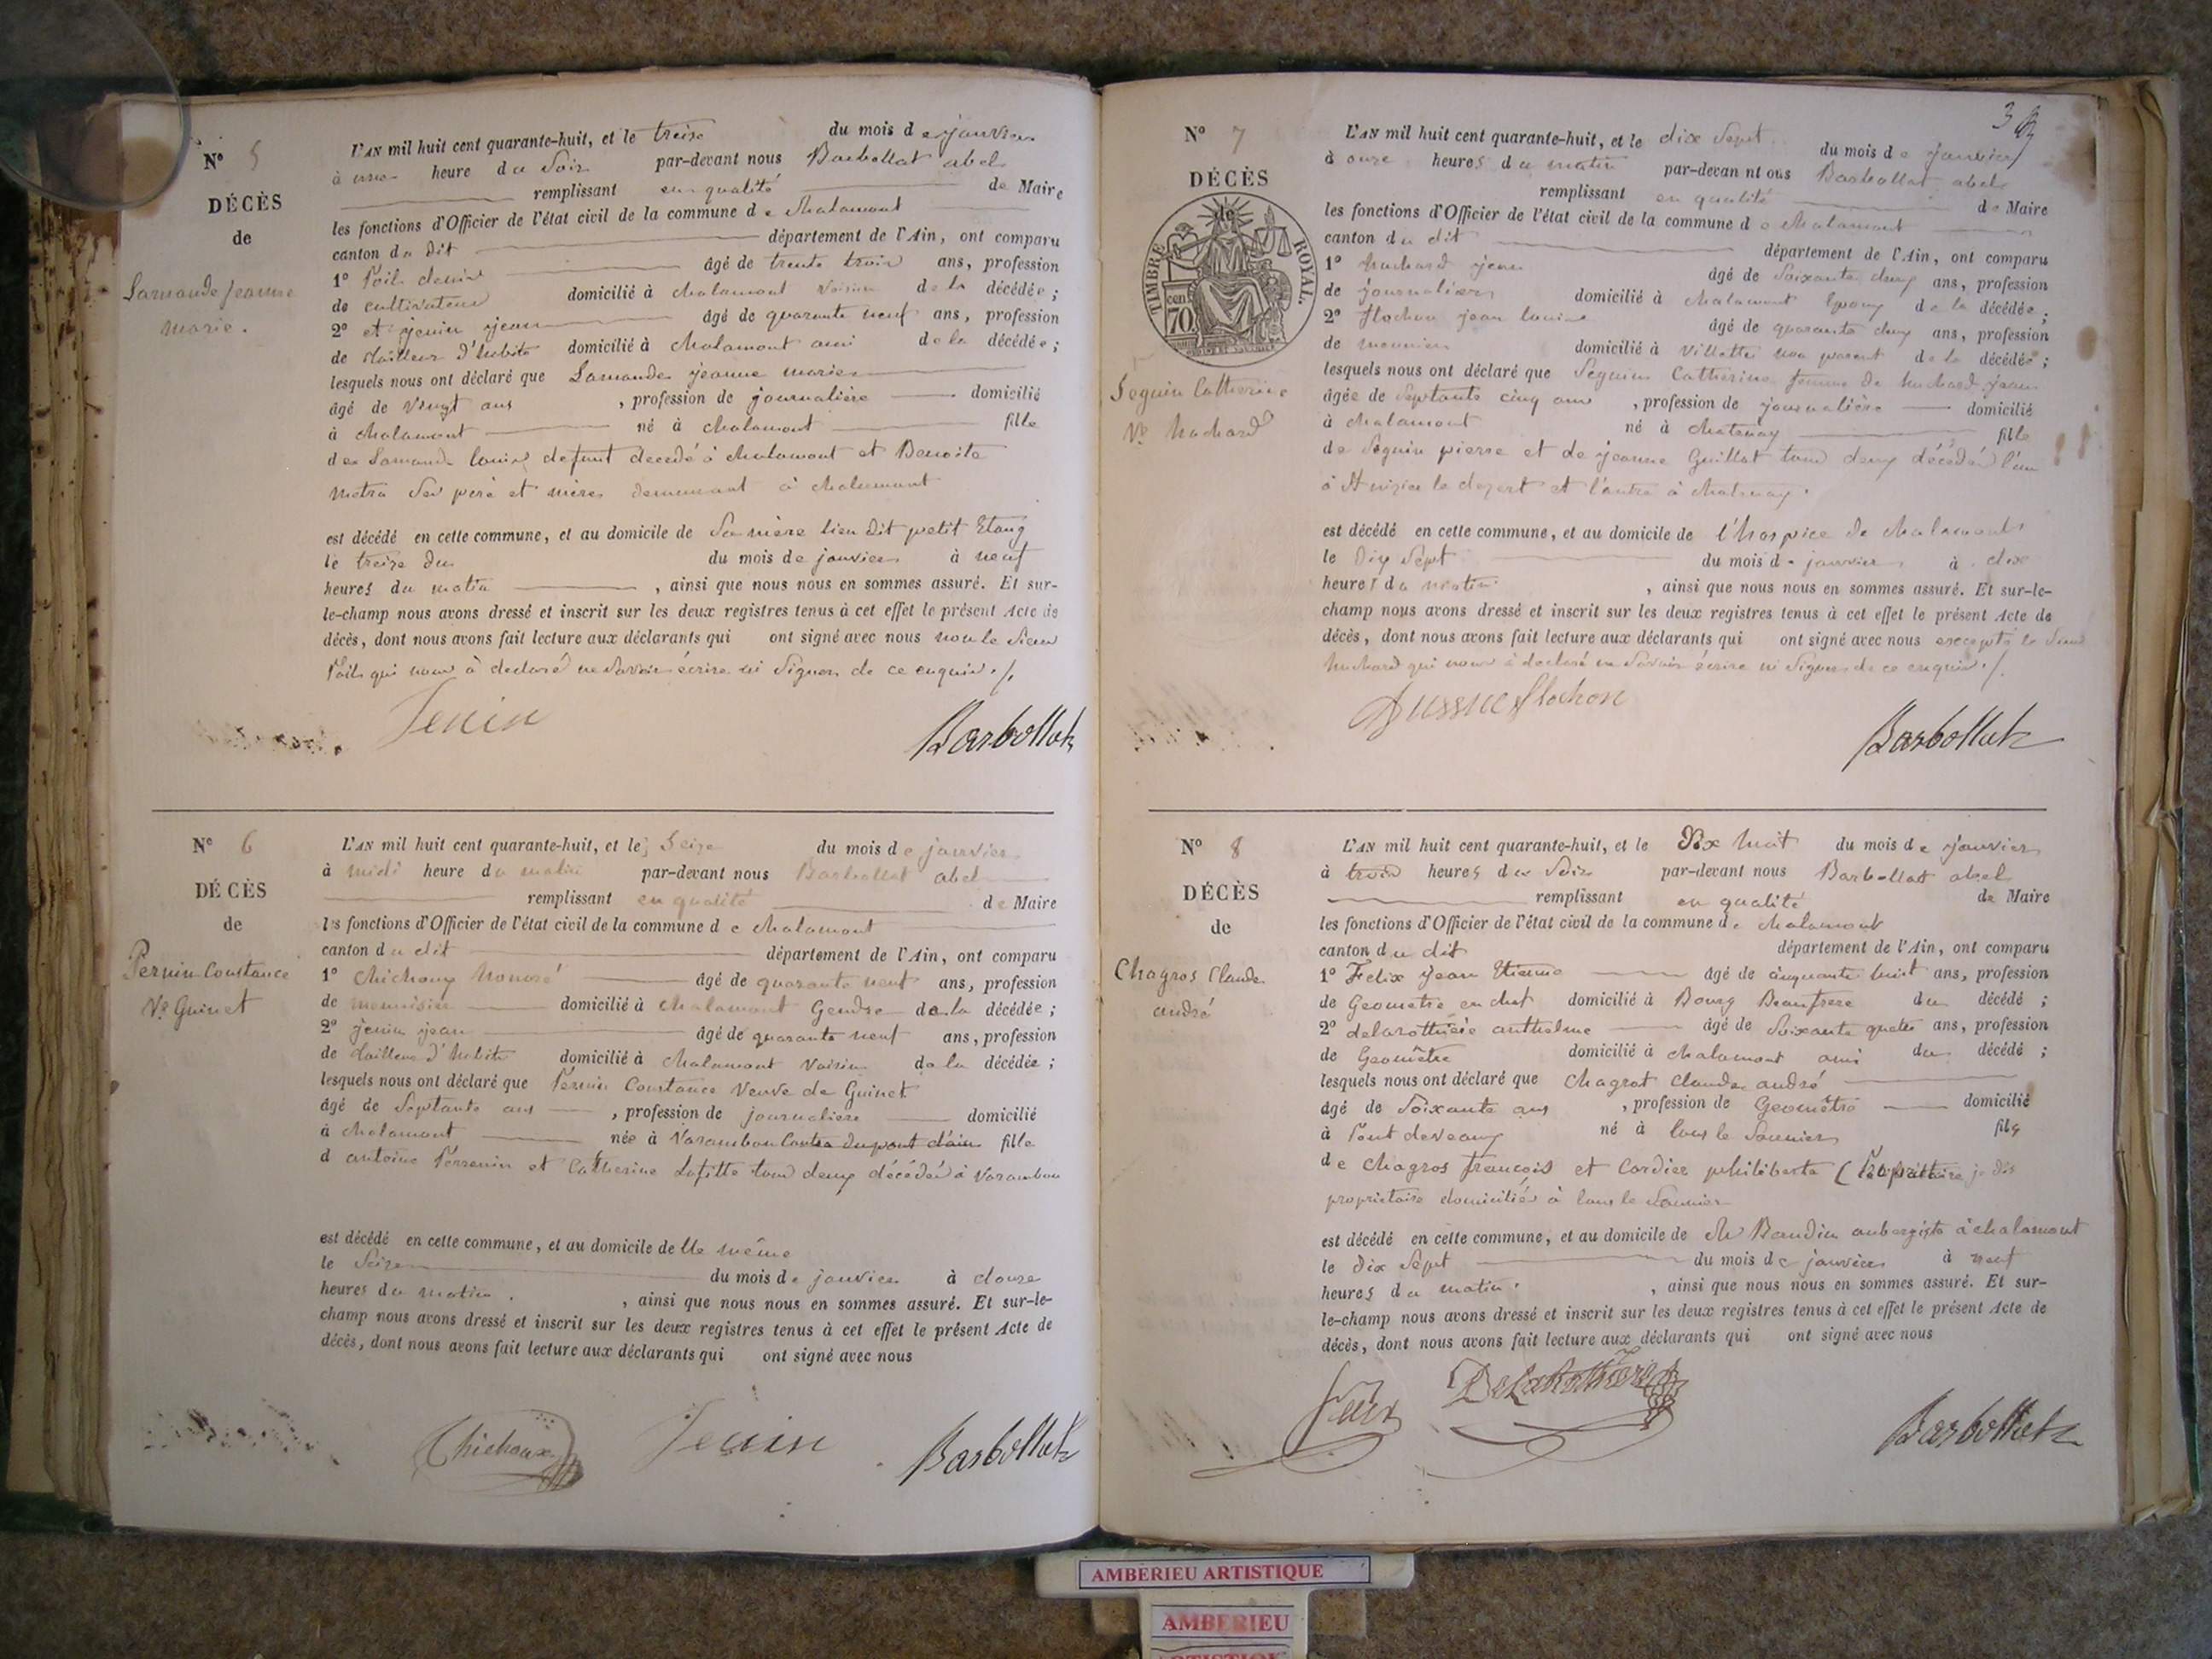 N° 5
DÉCÈS
de
Lamande jeanne
marie.
L'AN mil huit cent quarante-huit, et le treize du mois de janvier
à heure du Soir par-devant nous Barbollat abel
remplissant en qualité de Maire
les fonctions d'Officier de l'état civil de la commune de chalamont
canton du dit département de l'Ain, ont comparu
1° âgé de trente trois ans, profession
de cultivateur domicilié à chalamont voisin de la décédée;
2° et jenin jean âgé de quarante neuf ans, profession
de tailleur d'habits domicilié à chalamont ami de la décédée;
lesquels nous ont déclaré que Lamande jeanne marie
âgé de vingt ans, profession de journalière domicilié
à chalamont né à chalamont fille
de Lamande louis defunt decedé à chalamont et Benoite
metra ses père et mère demeurant à chalamont
est décédé en cette commune, et au domicile de Sa mère lieu dit petit Etang
le treize du du mois de janvier à neuf
heures du matin, ainsi que nous nous en sommes assuré. Et sur-
le-champ nous avons dressé et inscrit sur les deux registres tenus à cet effet le présent Acte de
décès, dont nous avons fait lecture aux déclarants qui ont signé avec nous non le Sieur
qui nous à declaré ne Savoir écrire ni Signer de ce enquis ./.
Jenin Barbollat
N° 6
DÉCÈS
de
Pernin Constance
Ve Guinet
L'AN mil huit cent quarante-huit, et le Seize du mois de janvier
à midi heure du matin par-devant nous Barbollat abel
remplissant en qualité de Maire
les fonctions d'Officier de l'état civil de la commune de chalamont
canton du dit département de l'Ain, ont comparu
1° Chichoux honoré âgé de quarante neuf ans, profession
de menuisier domicilié à chalamont Gendre de la décédée;
2° jenin jean âgé de quarante neuf ans, profession
de tailleur d'habits domicilié à chalamont Voisin de la décédée;
lesquels nous ont déclaré que Pernin Constance Veuve de Guinet
âgé de Septante ans, profession de journaliere domicilié
à chalamont née à Varambon Conton du pont d'ain fille
d antoine Perrenin et Catherine Lafitte tous deux décédés à Varambon
est décédé en cette commune, et au domicile de Elle même
le Seize du mois de janvier à douze
heures du matin, ainsi que nous nous en sommes assuré. Et sur-le-
champ nous avons dressé et inscrit sur les deux registres tenus à cet effet le présent Acte de
décès, dont nous avons fait lecture aux déclarants qui ont signé avec nous
Chichoux Jenin Barbollat
3
N° 7
DÉCÈS
de
TIMBRE ROYAL.
cen 70
Seguin Catherine
Ve huchard
L'AN mil huit cent quarante-huit, et le dix Sept du mois de janvier
à onze heures du matin par-devan nt ous Barbollat abel
remplissant en qualité de Maire
les fonctions d'Officier de l'état civil de la commune de chalamont
canton du dit département de l'Ain, ont comparu
1° huchard jean âgé de Soixante deux ans, profession
de journalier domicilié à chalamont Epoux de la décédée;
2° flochon jean louis âgé de quarante deux ans, profession
de meunier domicilié à Villette non parent de la décédée;
lesquels nous ont déclaré que Seguin Catherine femme de huchard jean
âgée de Septante cinq ans, profession de journalière domicilié
à chalamont né à chatenay fille
de Seguin pierre et de jeanne Guillot tous deux décédés l'un
à St nizier le dezert et l'autre à chatenay.
est décédé en cette commune, et au domicile de l'hospice de chalamont
le Dix Sept du mois de janvier à dix
heures du matin, ainsi que nous nous en sommes assuré. Et sur-le-
champ nous avons dressé et inscrit sur les deux registres tenus à cet effet le présent Acte de
décès, dont nous avons fait lecture aux déclarants qui ont signé avec nous excepté le Sieur
huchard qui nous à declaré ne Savoir écrire ni Signer de ce enquis ./.
flochon Barbollat
N° 8
DÉCÈS
de
Chagros Claude
andré
L'AN mil huit cent quarante-huit, et le Dix huit du mois de janvier
à trois heures du Soir par-devant nous Barbollat abel
remplissant en qualité de Maire
les fonctions d'Officier de l'état civil de la commune de chalamont
canton du dit département de l'Ain, ont comparu
1° Felix jean Etienne âgé de cinquante huit ans, profession
de Geometre en chef domicilié à Bourg Beaufrere du décédé;
2° delarottiere anthelme âgé de Soixante quatre ans, profession
de Geomêtre domicilié à chalamont ami du décédé;
lesquels nous ont déclaré que chagrot claude andré
âgé de Soixante ans, profession de Geomêtre domicilié
à Pont deveaux né à lons le Saunier fils
de chagros francois et Cordier philiberte ( je dis
proprietaire domiciliés à lons le Saunier
est décédé en cette commune, et au domicile de Mr Baudin aubergiste à chalamont
le dix Sept du mois de janvier à neuf
heures du matin, ainsi que nous nous en sommes assuré. Et sur-
le-champ nous avons dressé et inscrit sur les deux registres tenus à cet effet le présent Acte de
décès, dont nous avons fait lecture aux déclarants qui ont signé avec nous
Felix DeLaRottiere Barbollat
AMBERIEU ARTISTIQUE
AMBERIEU
ARTISTIQUE